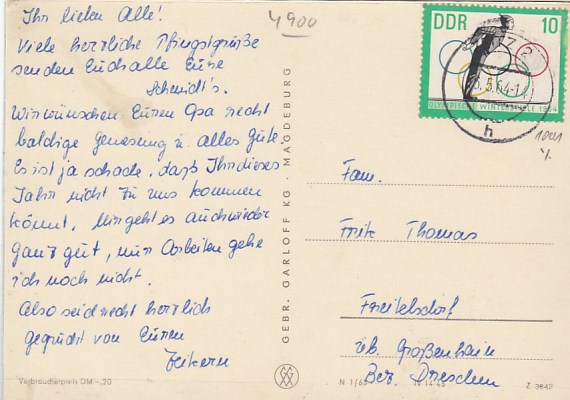 Ihr lieben Alle!
Viele herrliche Pfingstgrüße
senden Euch alle Eure
Schmidt's.
Wir wünschen Euren Opa recht
baldige Genesung u. alles Gute.
Es ist ja schade, daß Ihr dieses
Jahr nicht zu uns kommen
könnt. Mir geht es auch wieder
ganz gut, nur Arbeiten gehe
ich noch nicht.
Also seid recht herzlich
gegrüßt von Euren
4900
DDR 10
5.64-1
OLYMPISCHE WINTERSPIELE 1964
h
GEBR. GARLOFF KG · MAGDEBURG
Fam.
Frik Thomas
Freitelsdorf
üb. Großenhain
Bez. Dresden
Verbraucherpreis DM -.20
N 1/63
Z 3642